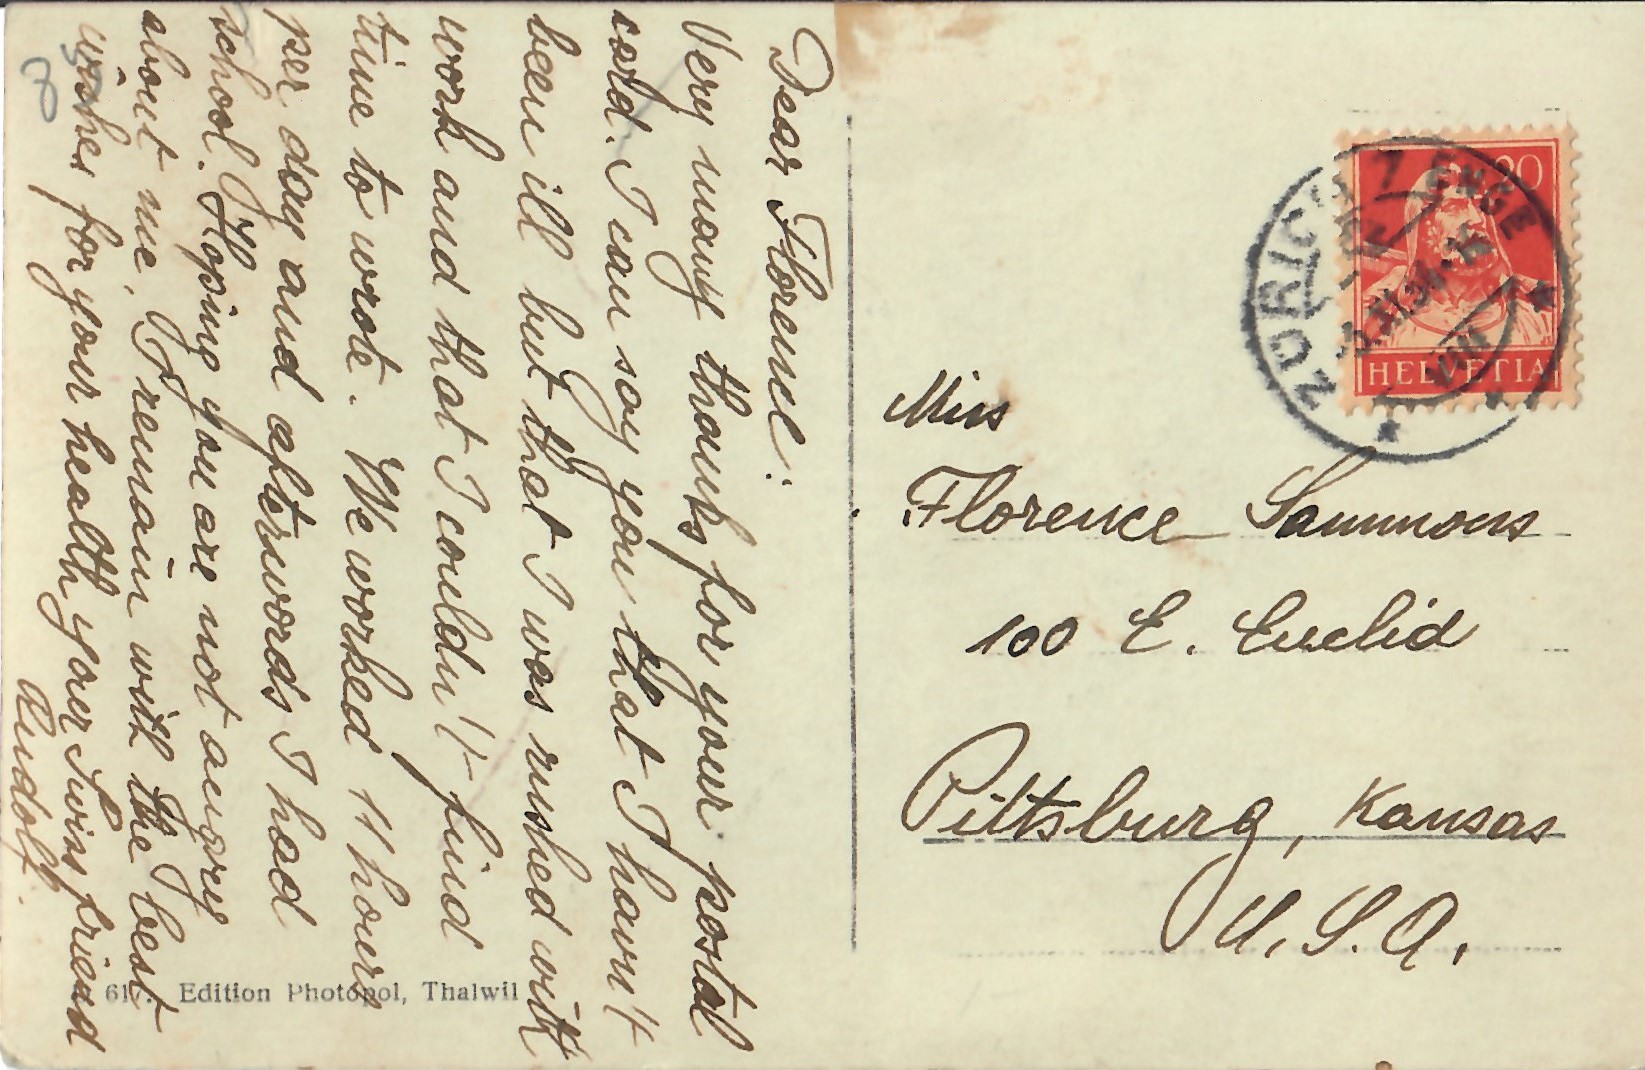 Dear Florence:
Very many thanks for your postal
card. I can say you that I havn't
been ill but that I was rushed with
work and that I couldn't find
time to wrote. We worked 11 hours
per day and afterwords I had
school. Hoping you are not angry
about me, I remain with the best
wishes for your health your Swiss friend
Rudolf.
Edition Photopol, Thalwil
20
HELVETIA
ZÜRICH 7 ENGE
VIII
Miss
Florence Sammons
100 E. Euclid
Pittsburg, Kansas
U.S.A.